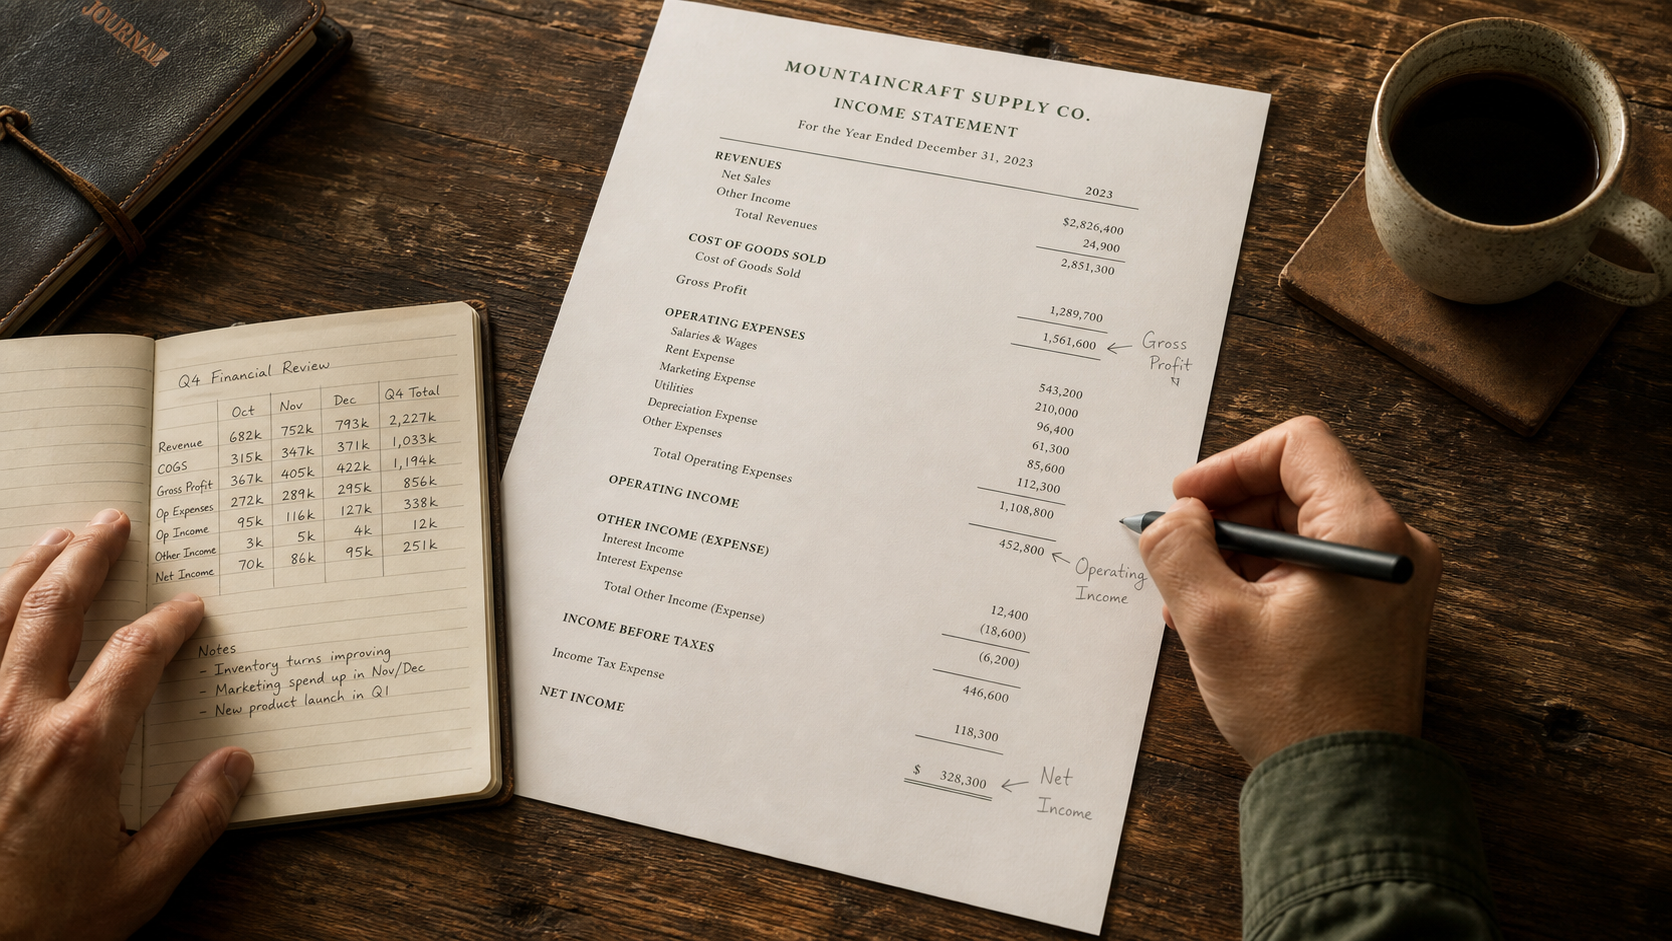 JOURNAL
Q4 Financial Review
Oct Nov Dec Q4 Total
Revenue 682k 752k 793k 2,227k
COGS 315k 347k 371k 1,033k
Gross Profit 367k 405k 422k 1,194k
Op Expenses 272k 289k 295k 856k
Op Income 95k 116k 127k 338k
Other Income 3k 5k 4k 12k
Net Income 70k 86k 95k 251k
Notes
- Inventory turns improving
- Marketing spend up in Nov/Dec
- New product launch in Q1
MOUNTAINCRAFT SUPPLY CO.
INCOME STATEMENT
For the Year Ended December 31, 2023
2023
REVENUES
Net Sales $2,826,400
Other Income 24,900
Total Revenues 2,851,300
COST OF GOODS SOLD
Cost of Goods Sold 1,289,700
Gross Profit 1,561,600
Gross
Profit
OPERATING EXPENSES
Salaries & Wages 543,200
Rent Expense 210,000
Marketing Expense 96,400
Utilities 61,300
Depreciation Expense 85,600
Other Expenses 112,300
Total Operating Expenses 1,108,800
OPERATING INCOME 452,800
Operating
Income
OTHER INCOME (EXPENSE)
Interest Income 12,400
Interest Expense (18,600)
Total Other Income (Expense) (6,200)
INCOME BEFORE TAXES 446,600
Income Tax Expense 118,300
NET INCOME $ 328,300
Net
Income